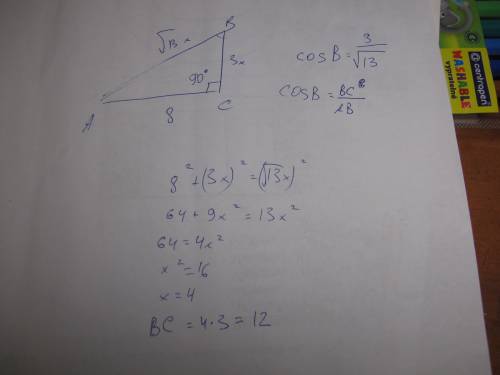 B
√13 x
3x
90°
A
8
C
cosB = 3/√13
cosB = BC/AB
8² + (3x)² = (√13x)²
64 + 9x² = 13x²
64 = 4x²
x² = 16
x = 4
BC = 4·3 = 12
centropen
WASHABLE
vypratelné